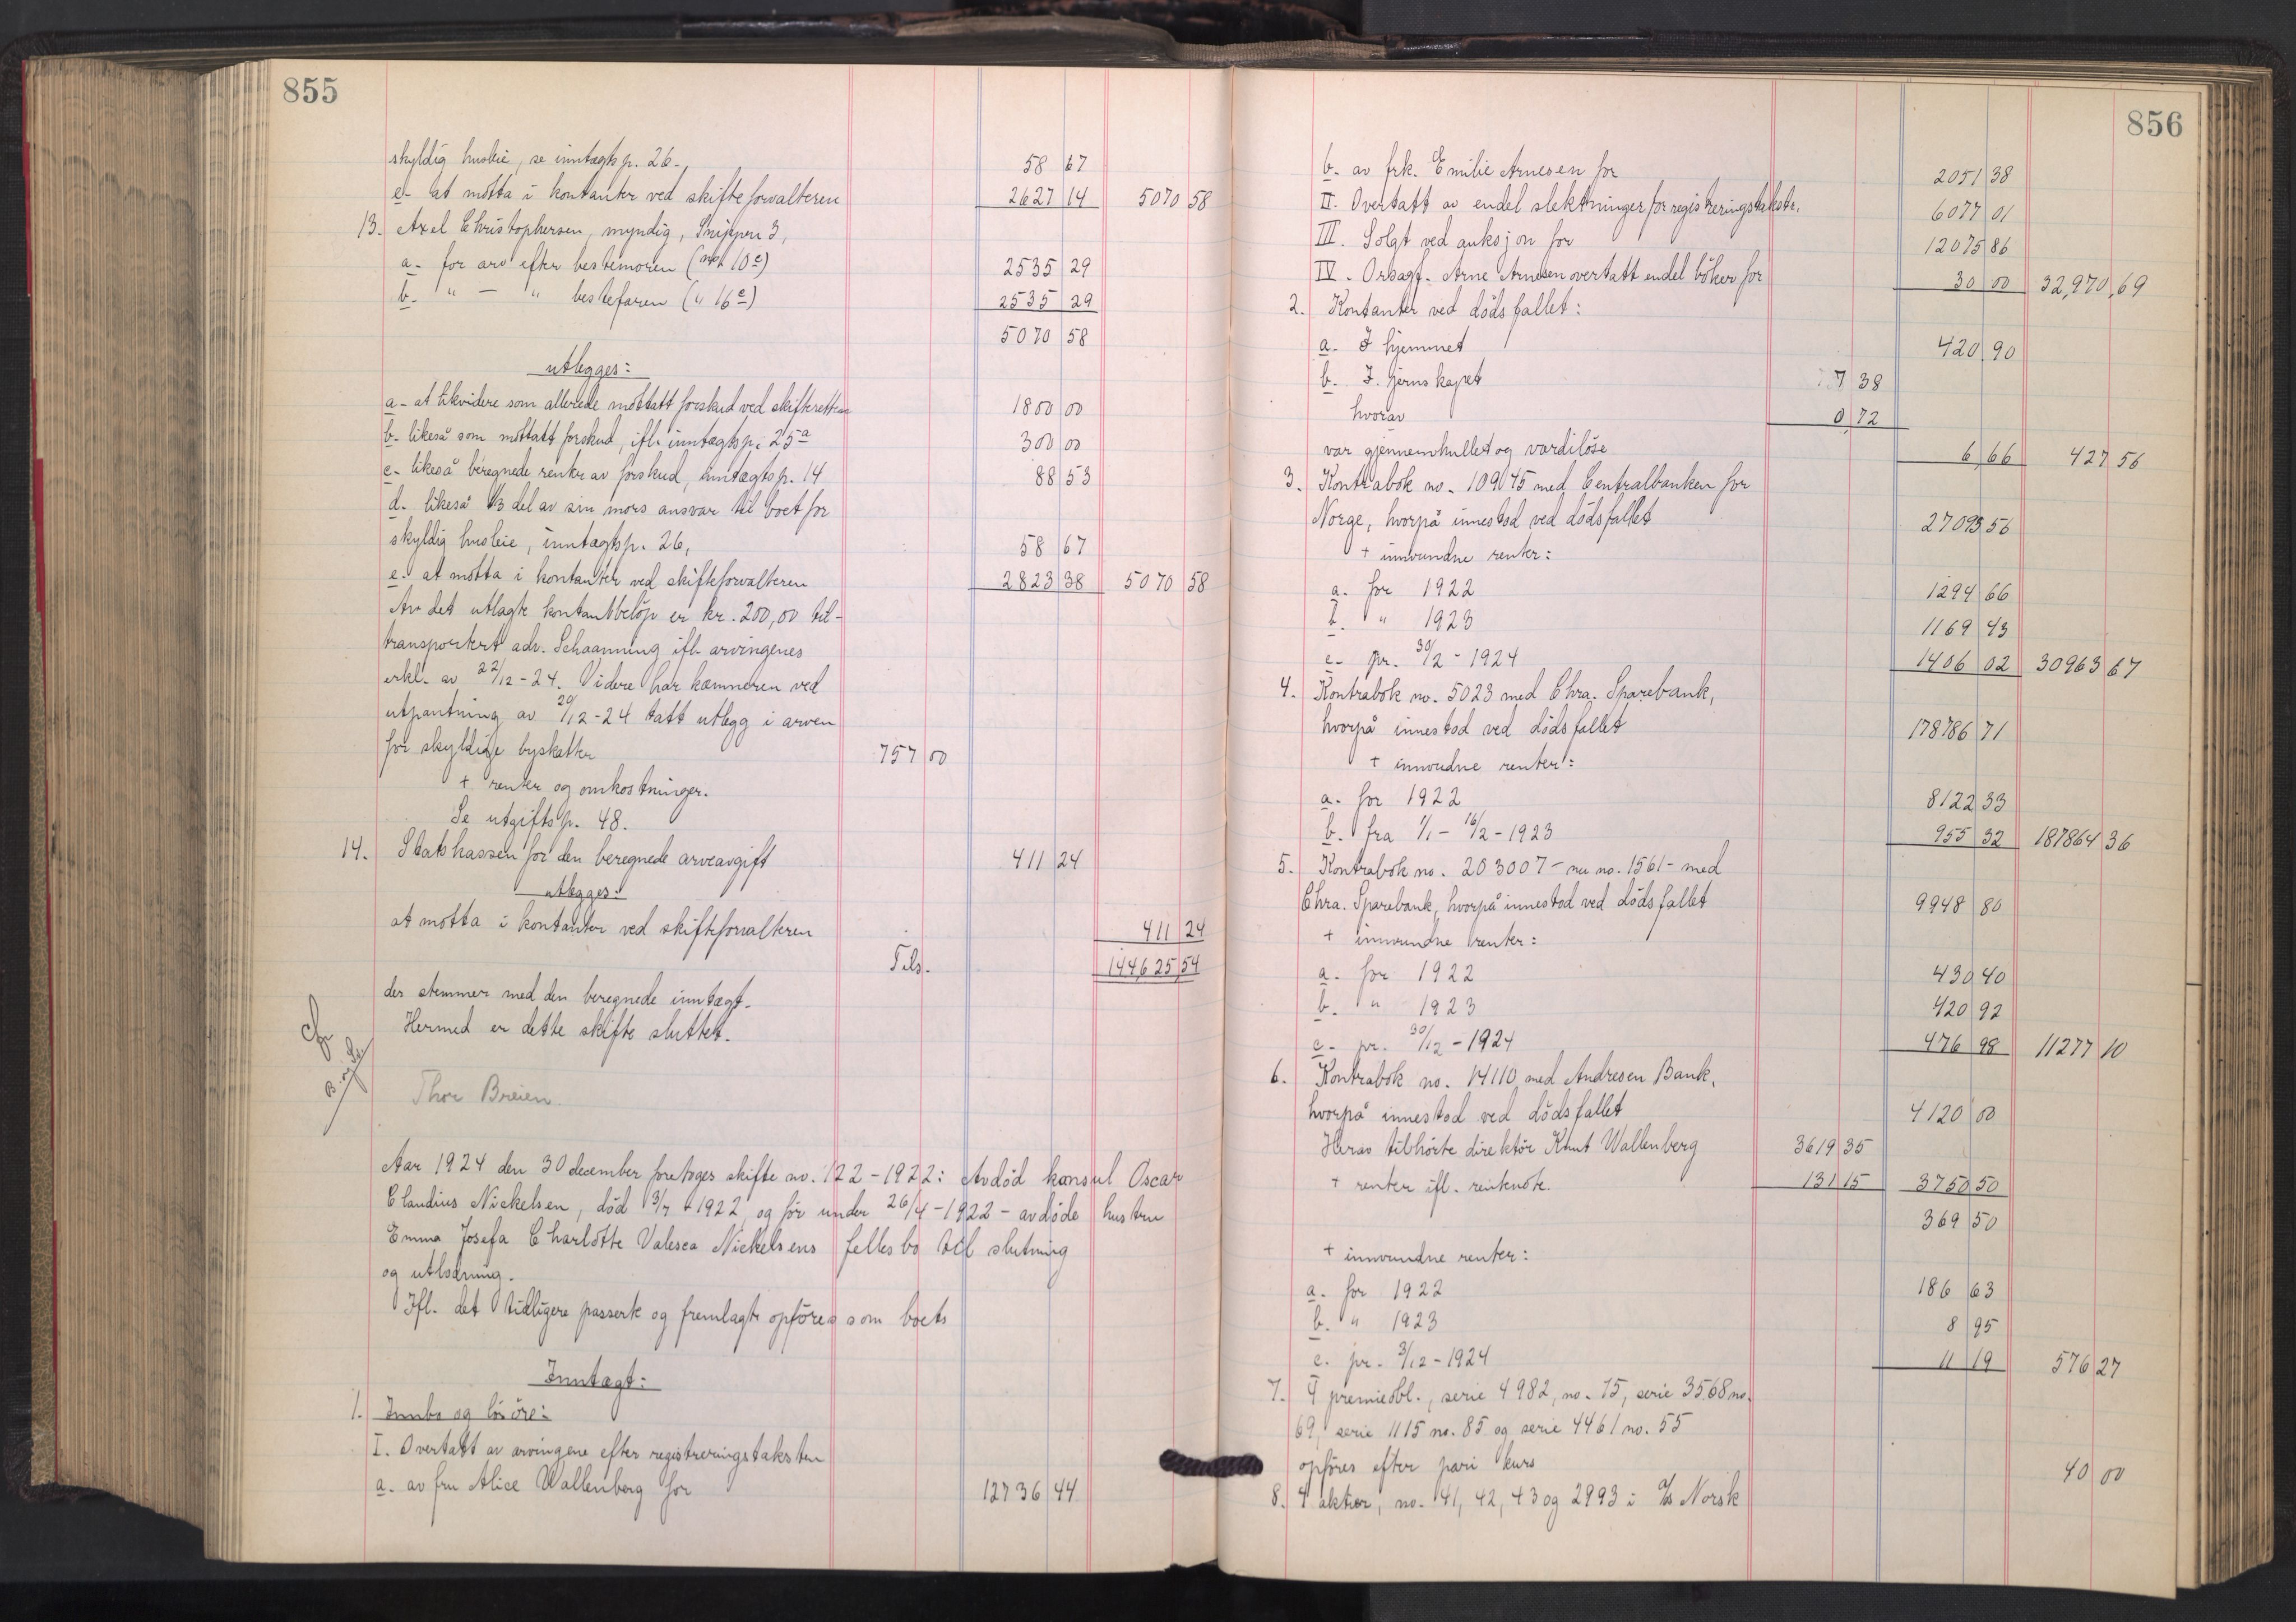 855
skyldig husleie, se inntægts p. 26.,
58 67
e- at motta i kontanter ved skifteforvalteren 2627 14 5070 58
13. Axel Christophersen, myndig, Snippen 3,
a- for arv efter bestemoren (no. 10 e) 2535 29
b. " - " bestefaren (" 16 e) 2535 29
5070 58
utlegges:
a- at likvidere som allerede mottatt forskud ved skifteretten 1800 00
b- likeså som mottatt forskud, ifl. inntægts p. 25 a 300 00
c- likeså beregnede renter av forskud, inntægts p. 14 88 53
d. likeså 1/3 del av sin mors ansvar til boet for
skyldig husleie, inntægts p. 26, 58 67
e. at motta i kontanter ved skifteforvalteren 2823 38 5070 58
Av det utlagte kontantbeløp er kr. 200,00 til-
transportert adv. Schaanning ifl. arvingenes
erkl. av 22/12-24. Videre har kæmneren ved
utpantning av 29/12-24 tatt utlegg i arven
for skyldige byskatter 757 00
+ renter og omkostninger.
Se utgifts p. 48.
14. Statskassen for den beregnede arveavgift 411 24
utlegges:
at motta i kontanter ved skifteforvalteren 411 24
Tils. 144625 54
der stemmer med den beregnede inntægt.
Hermed er dette skifte sluttet.
Thor Breien.
Aar 1924 den 30 december foretoges skifte no. 122-1922: Avdød konsul Oscar
Claudius Nickelsen, død 3/7 1922, og før under 26/4-1922 - avdøde hustru
Emma Josefa Charlotte Valesca Nickelsens fellesbo til slutning
og utlodning.
Ifl. det tidligere passerte og fremlagte opføres som boets
Inntægt:
1. Innbo og løsøre:
I. Overtatt av arvingene efter registreringstaksten
a. av fru Alice Wallenberg for 12736 44
856
b. av frk. Emilie Arnesen for 2051 38
II. Overtatt av endel slektninger for registreringstakstr. 6077 01
III. Solgt ved auksjon for 12075 86
IV. Orsagf. Arne Arnesen overtatt endel bøker for 30 00 32,970,69
2. Kontanter ved dødsfallet:
a. I hjemmet 420 90
b. I. jernskapet 7 38
hvorav 0 72
var gjennemhullet og værdiløse 6 66 427 56
3. Kontrabok no. 109175 med Centralbanken for
Norge, hvorpå innestod ved dødsfallet 27093 56
+ innvundne renter:
a. for 1922 1294 66
b. " 1923 1169 43
c- pr. 30/12-1924 1406 02 30963 67
4. Kontrabok no. 5023 med Chra. Sparebank,
hvorpå innestod ved dødsfallet 178786 71
+ innvundne renter:
a. for 1922 8122 33
b. fra 1/1 - 16/2-1923 955 32 187864 36
5. Kontrabok no. 203007 - nu no. 1561- med
Chra. Sparebank, hvorpå innestod ved dødsfallet 9948 80
+ innvundne renter:
a. for 1922 430 40
b. " 1923 420 92
c- pr. 30/12-1924 476 98 11277 10
6. Kontrabok no. 14110 med Andresen Bank,
hvorpå innestod ved dødsfallet 4120 00
Herav tilhørte direktør Knut Wallenberg 3619 35
+ renter ifl. rentenote. 131 15 3750 50
369 50
+ innvundne renter:
a. for 1922 186 63
b. " 1923 8 95
c. pr. 3/12-1924 11 19 576 27
7. 4 premieobl., serie 4982, no. 75, serie 3568 no.
69, serie 1115 no. 85 og serie 4461 no. 55
opføres efter pari kurs 40 00
8. 4 aktier, no. 41, 42, 43 og 2993 i A/s Norsk